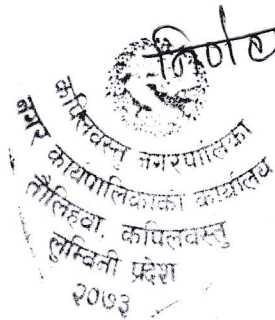 कपिलवस्तु नगरपालिका
नगर कार्यपालिकाको कार्यालय
तौलिहवा, कपिलवस्तु
लुम्बिनी प्रदेश
२०७३